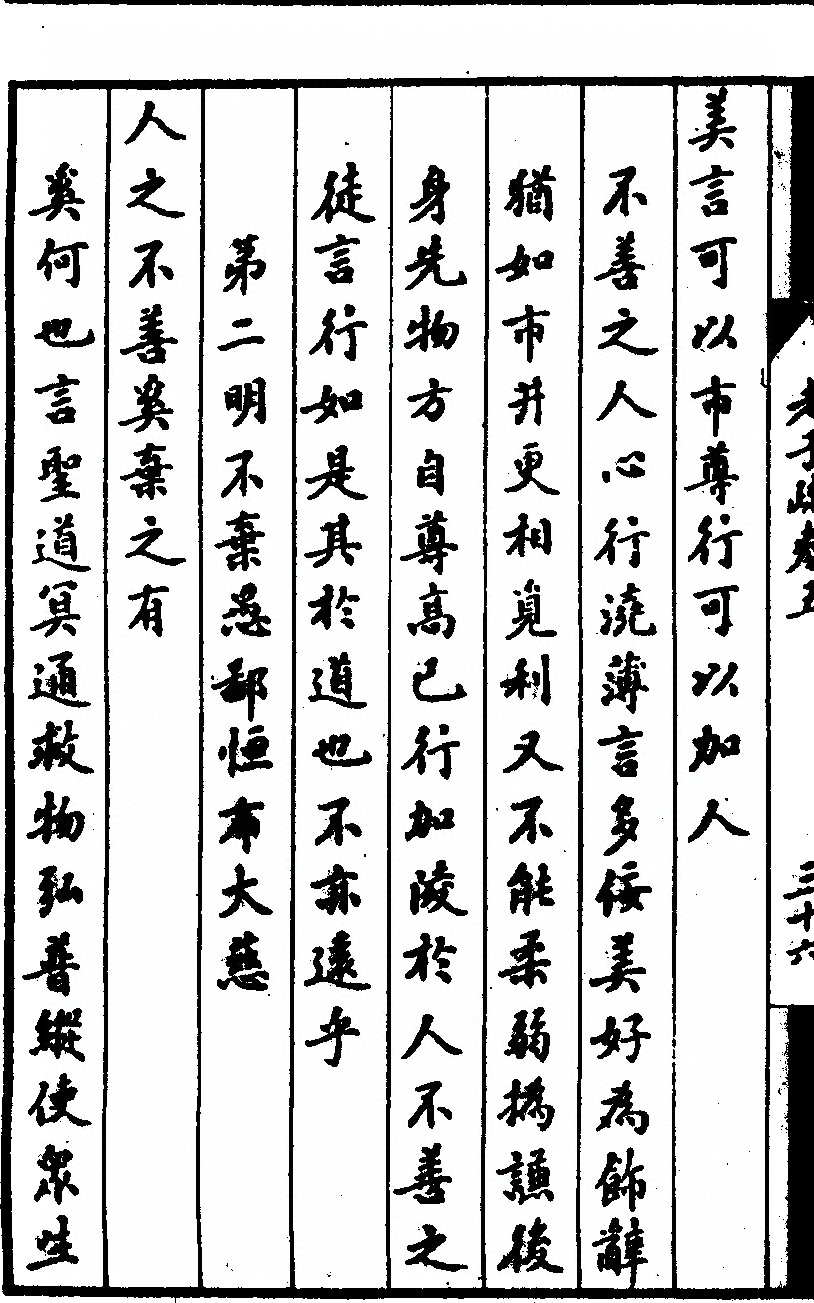 老子疏卷五
三十六
美言可以市尊行可以加人
不善之人心行澆薄言多佞美好為飾辭
猶如市井更相覓利又不能柔弱撝謙後
身先物方自尊高已行加陵於人不善之
徒言行如是其於道也不亦遠乎
第二明不棄愚鄙恒布大慈
人之不善奚棄之有
奚何也言聖道冥通救物弘普縱使眾生